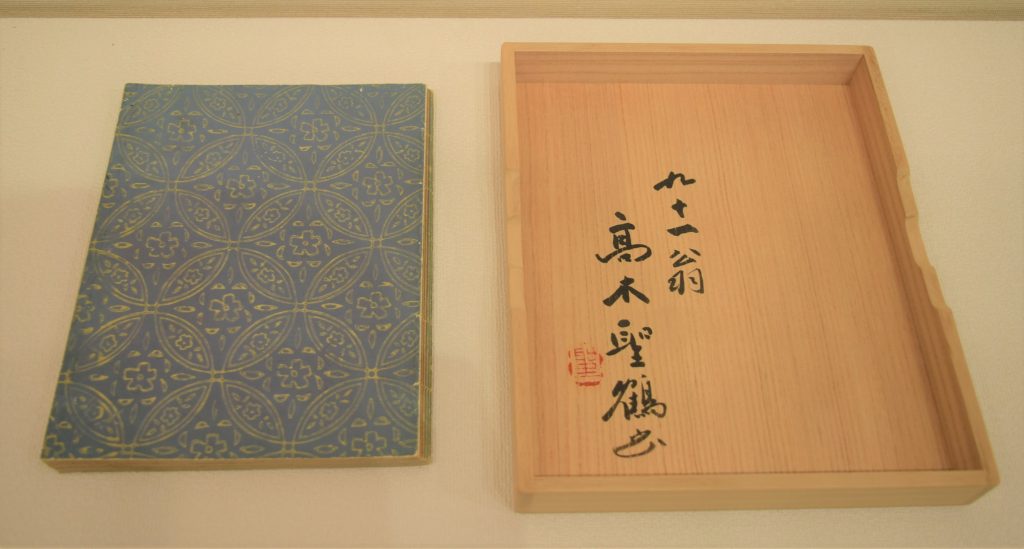 九十一翁
髙木聖鶴書
聖